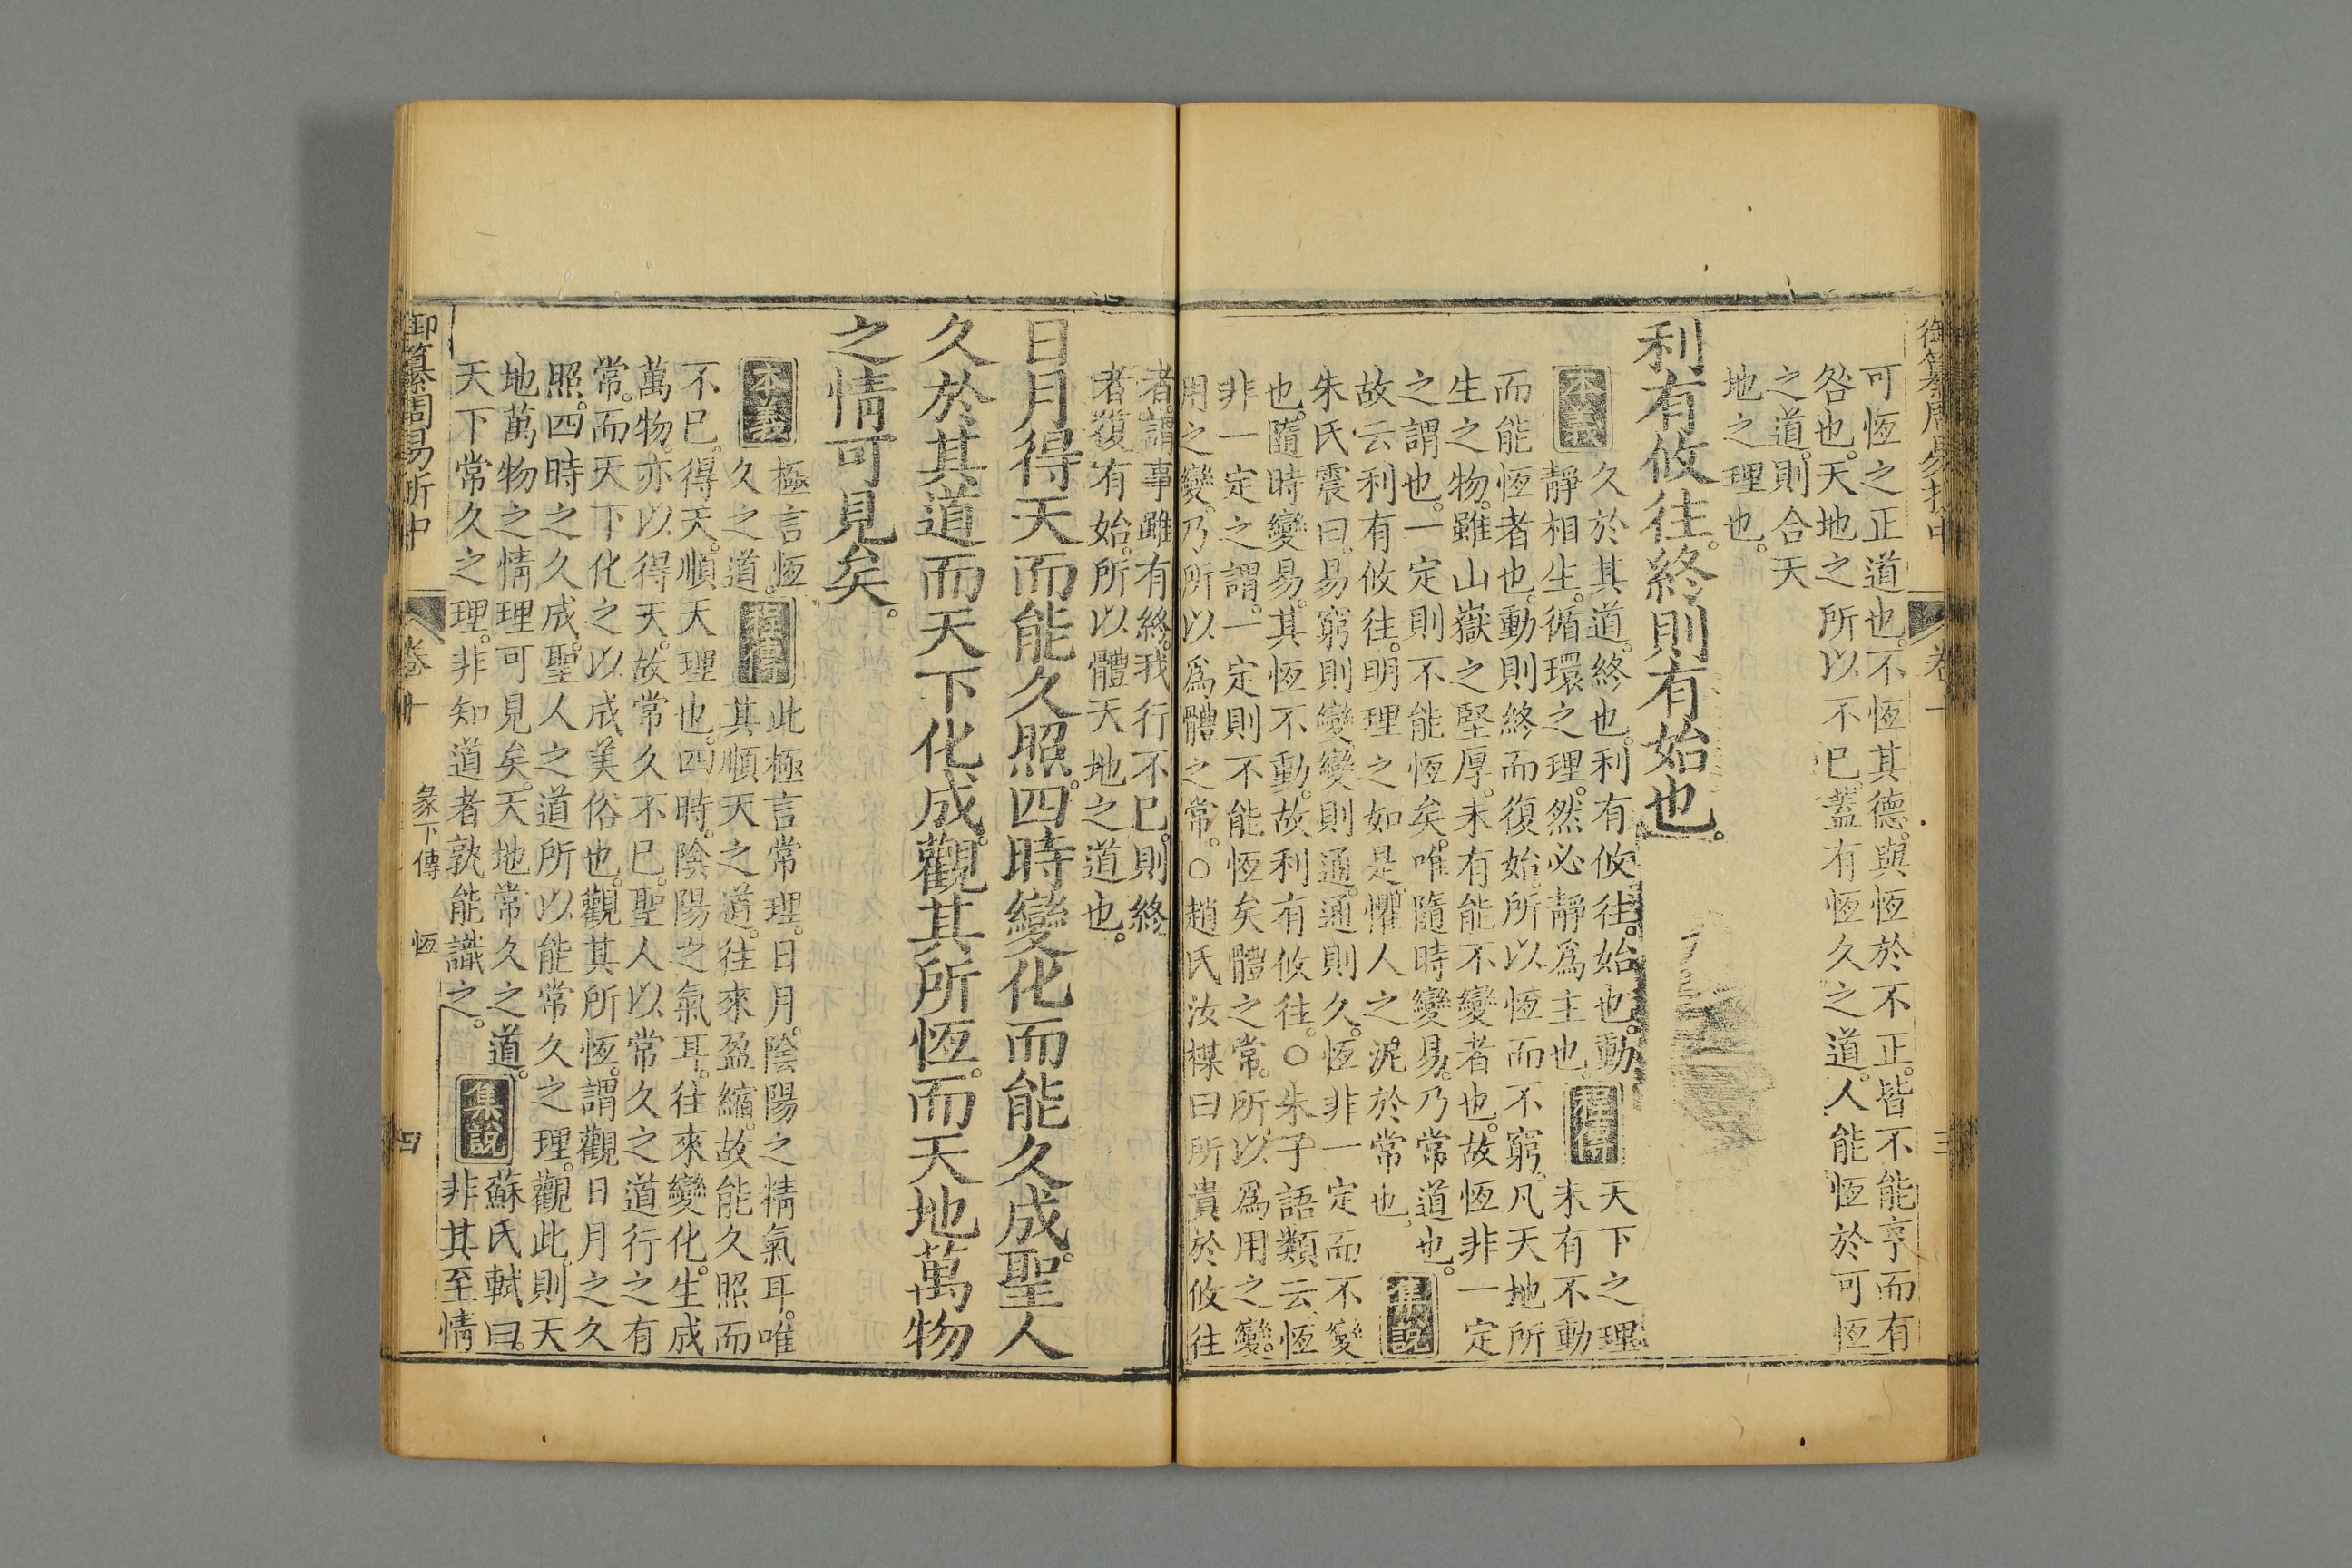 御纂周易折中 卷十 三
可恆之正道也。不恆其德。與恆於不正。皆不能亨而有
咎也。天地之所以不已。蓋有恆久之道。人能恆於可恆
之道。則合天
地之理也。
利有攸往。終則有始也。
本義
久於其道。終也。利有攸往。始也。動
靜相生。循環之理。然必靜爲主也。
程傳
天下之理。
未有不動
而能恆者也。動則終而復始。所以恆而不窮。凡天地所
生之物。雖山嶽之堅厚。未有能不變者也。故恆非一定
之謂也。一定則不能恆矣。唯隨時變易。乃常道也。
故云利有攸往。明理之如是。懼人之泥於常也。
集說
朱氏震曰。易窮則變。變則通。通則久。恆非一定而不變
也。隨時變易。其恆不動。故利有攸往。○朱子語類云。恆
非一定之謂。一定則不能恆矣。體之常。所以爲用之變。
用之變。乃所以爲體之常。○趙氏汝楳曰所貴於攸往
者。謂事雖有終。我行不已。則終
者復有始。所以體天地之道也。
日月得天而能久照。四時變化而能久成。聖人
久於其道而天下化成。觀其所恆。而天地萬物
之情可見矣。
本義
極言恆
久之道。
程傳
此極言常理。日月。陰陽之精氣耳。唯
其順天之道。往來盈縮。故能久照而
不已。得天。順天理也。四時。陰陽之氣耳。往來變化。生成
萬物。亦以得天。故常久不已。聖人以常久之道行之有
常。而天下化之以成美俗也。觀其所恆。謂觀日月之久
照。四時之久成。聖人之道所以能常久之理。觀此。則天
地萬物之情理可見矣。天地常久之道。
天下常久之理。非知道者孰能識之。
集說
蘇氏軾曰。
非其至情
御纂周易折中 卷十 彖下傳 恆 四